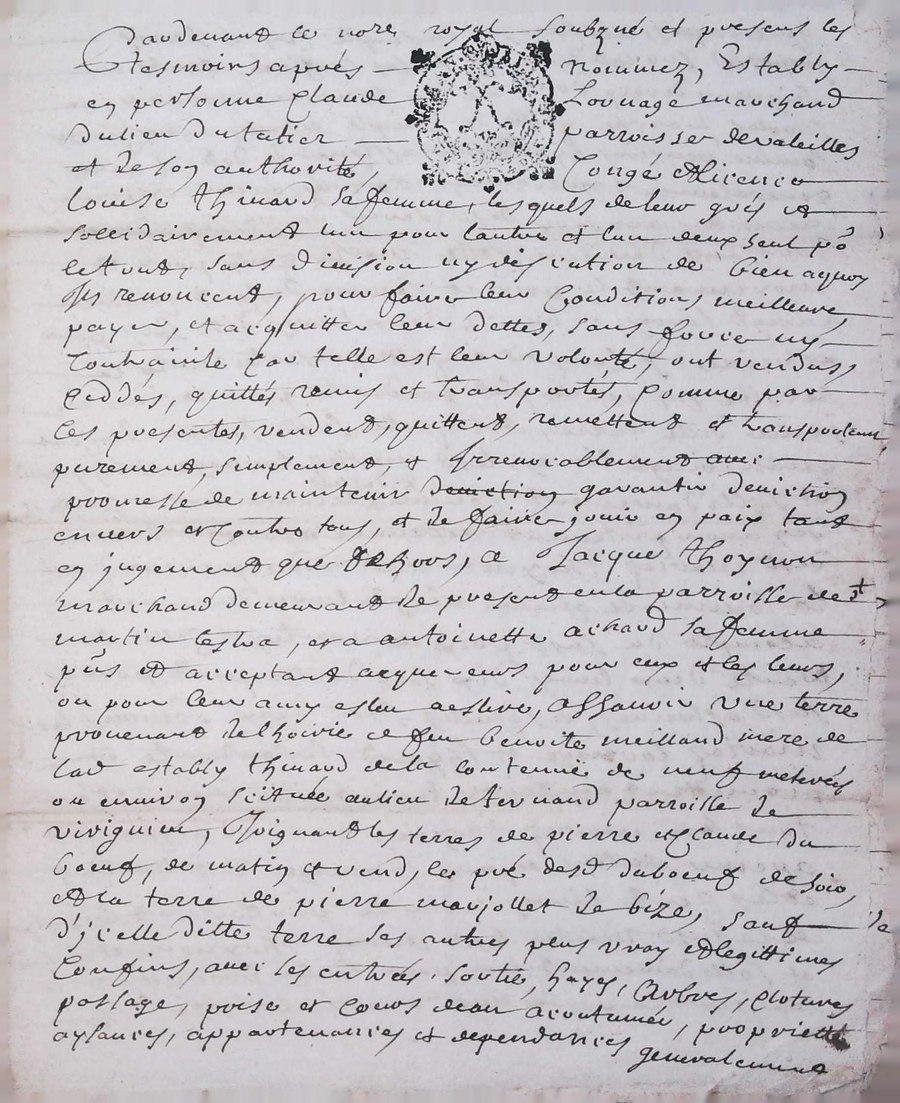 Pardevant le nore royal soubzné et presens les
tesmoins aprés nommez, Estably
en personne Claude Lovnage marchand
du lieu du tatier parroisse de valeilles
et de son authorité, Congé et licence
Louise thinard sa femme, lesquels de leur grés et
sollidairement un pour lautre et lun deux seul pō
le tout, sans division ny discution de bien aquoy
Ils renoncent, pour faire leur Conditions meilleure,
payer, et acquitter leur dettes, sans force ny
Contrainte Car telle est leur volonté, ont vendus,
Ceddés, quittés remis et transportés, Comme par
Ces presentes, vendent, quittent, remettent et transportent
purement, simplement, et Irrevocablement avec
promesse de maintenir deviction garantir deviction
envers et Contre tous, et de faire jouir en paix tant
en jugement que dehors, a Jacque thoynon
marchand demeurant de present en la parroisse de st
martin lestra, et a antoinette achard sa femme
pñs et acceptant acquereurs pour eux et les leurs,
ou pour leur amy esleu a eslire, assavoir une terre
provenant de lhoirie de feu benoite meilland mere de
lad estably thinard de la contenue de neuf meterées
ou environ scituée au lieu de fernand parroisse de
virignieu, Joignant les terres de pierre et Claude du
boeuf, de matin et vend, les pré desd duboeuf de soir,
et la terre de pierre marjollet de bize, sauf de
d'jcelle ditte terre ses autres plus vray et legittimes
Confins, avec ses entrées, sortie, hayes, Arbres, Clotures
passage, prise et Cours deau acoutumée, proprieté
aysances, appartenances et dependances
generalement